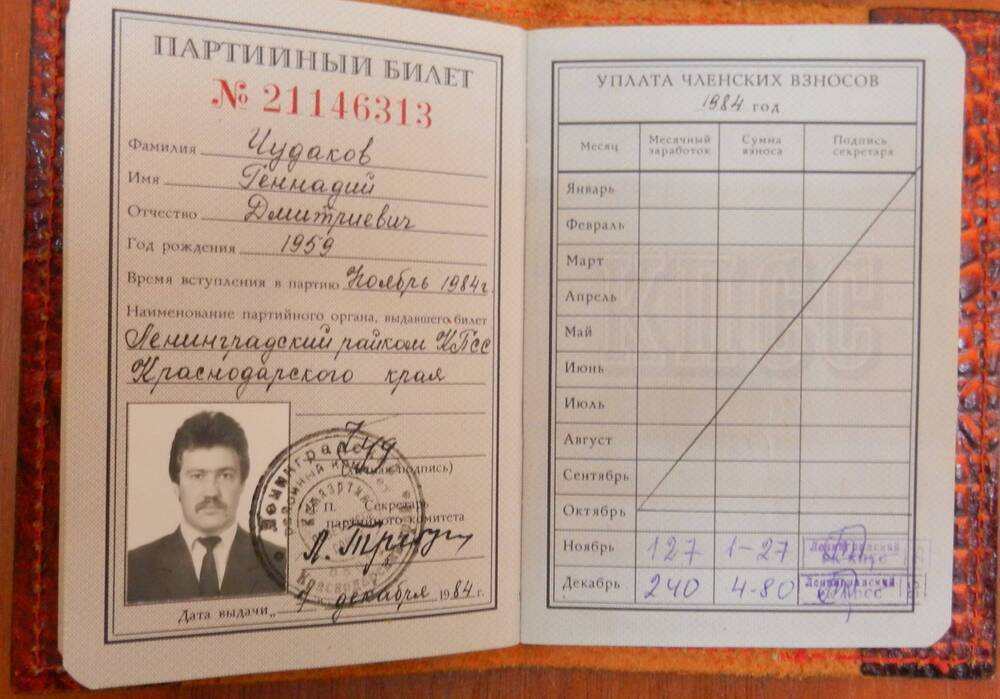 ПАРТИЙНЫЙ БИЛЕТ
№ 21146313
Фамилия Чудаков
Имя Геннадий
Отчество Дмитриевич
Год рождения 1959
Время вступления в партию Ноябрь 1984г.
Наименование партийного органа, выдавшего билет
Ленинградский райком КПСС
Краснодарского края
(личная подпись)
М.П. Секретарь
партийного комитета
Дата выдачи „ 7 декабря 1984 г.
УПЛАТА ЧЛЕНСКИХ ВЗНОСОВ
1984 ГОД
Месяц Месячный заработок Сумма взноса Подпись секретаря
КПСС
Январь
Февраль
Март
Апрель
Май
Июнь
Июль
Август
Сентябрь
Октябрь
Ноябрь 127 1-27 Ленинградский РК КПСС
Декабрь 240 4-80 Ленинградский РК КПСС